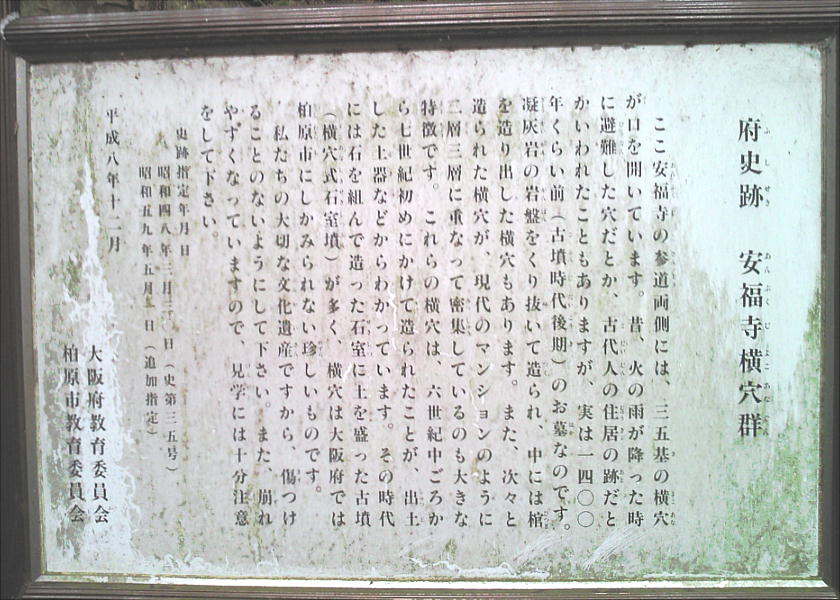 府史跡 安福寺横穴群
ここ安福寺の参道両側には、三五基の横穴
が口を開いています。昔、火の雨が降った時
に避難した穴だとか、古代人の住居の跡だと
かいわれたこともありますが、実は一四〇〇
年くらい前(古墳時代後期)のお墓なのです。
凝灰岩の岩盤をくり抜いて造られ、中には棺
を造り出した横穴もあります。また、次々と
造られた横穴が、現代のマンションのように
二層三層に重なって密集しているのも大きな
特徴です。これらの横穴は、六世紀中ごろか
ら七世紀初めにかけて造られたことが、出土
した土器などからわかっています。その時代
には石を組んで造った石室に土を盛った古墳
(横穴式石室墳)が多く、横穴は大阪府では
柏原市にしかみられない珍しいものです。
私たちの大切な文化遺産ですから、傷つけ
ることのないようにして下さい。また、崩れ
やすくなっていますので、見学には十分注意
をして下さい。
史跡指定年月日
昭和四八年三月三〇日(史第三五号)
昭和五九年五月一日(追加指定)
平成八年十二月
大阪府教育委員会
柏原市教育委員会